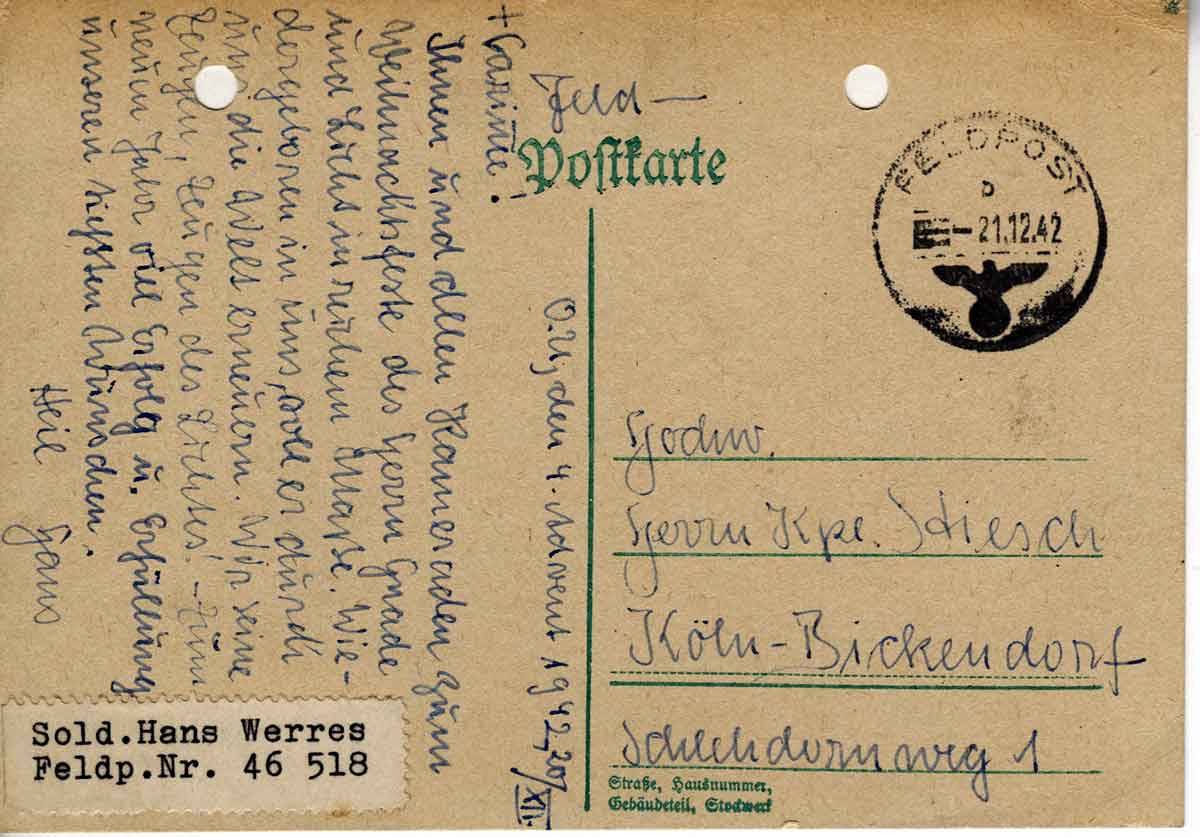 O.U., den 4. Advent 1942, 20/XII.
+ Caritie!
Ihnen und allen Kameraden zum
Weihnachtsfeste des Herrn Gnade
und Licht in reichem Maße. Wie-
dergeboren in uns, soll er durch
uns die Welt erneuern. Wir seine
Zeugen, Zeugen des Lichtes! – Zum
neuen Jahr viel Erfolg u. Erfüllung
unseren tiefsten Wünschen.
Heil
Hans
Sold.Hans Werres
Feldp.Nr. 46 518
Feld –
Postkarte
FELDPOST
b
-21.12.42
Hochw.
Herrn Kpl. Stiesch
Köln-Bickendorf
Schlehdornweg 1
Straße, Hausnummer,
Gebäudeteil, Stockwerk